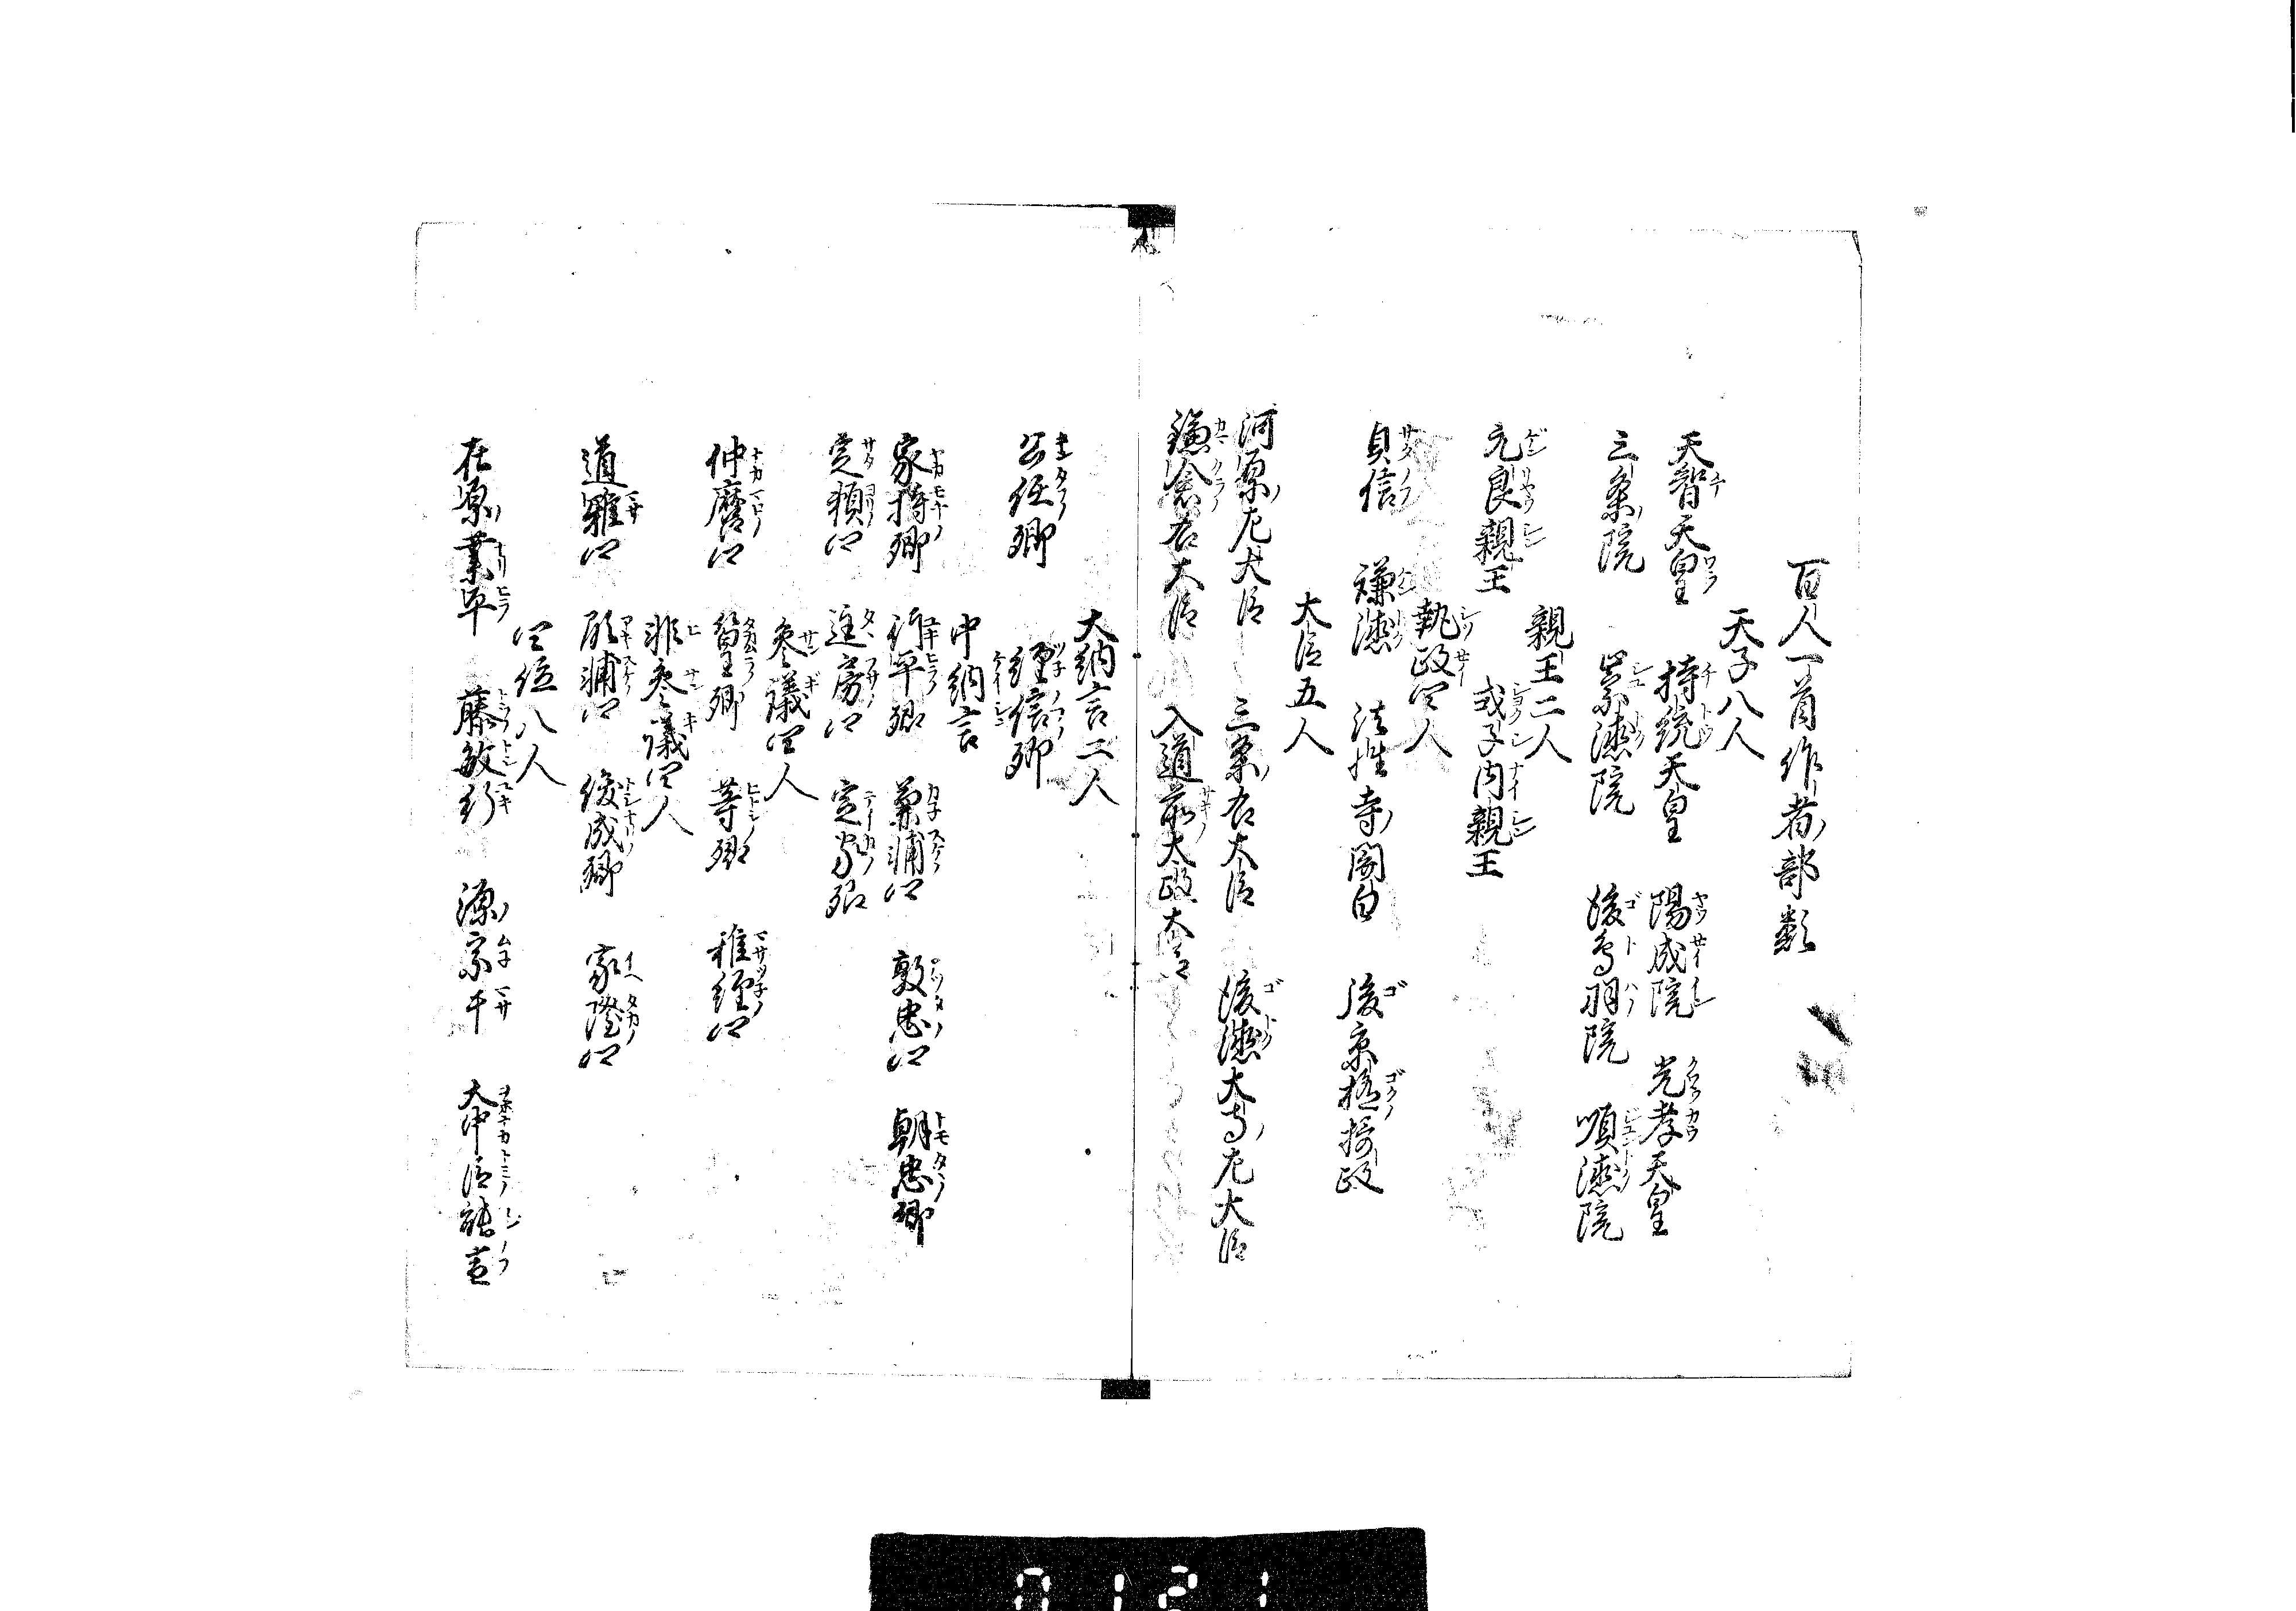 百人一首作者ノ部類
天子八人
天智天皇　持統天皇　陽成院　光孝天皇
三条ノ院　崇徳院　後鳥羽院　順徳院
親王二人
元良親王　式子内親王
執政四人
貞信　謙徳　法性寺ノ関白　後京極摂政
大臣五人
河原ノ左大臣　三条ノ右大臣　後徳大寺ノ左大臣
鎌倉右大臣　入道前大政大臣
大納言二人
公任卿　経信卿
中納言
家持卿　行平卿　兼輔卿　敦忠卿　朝忠卿
定頼卿　匡房卿　定家卿
参議四人
仲麿卿　篁卿　等卿　雅経卿
非参議四人
道雅卿　顕輔卿　俊成卿　家隆卿
四位八人
在原ノ業平　藤敏行　源ノ宗于　大中臣能宣
0121